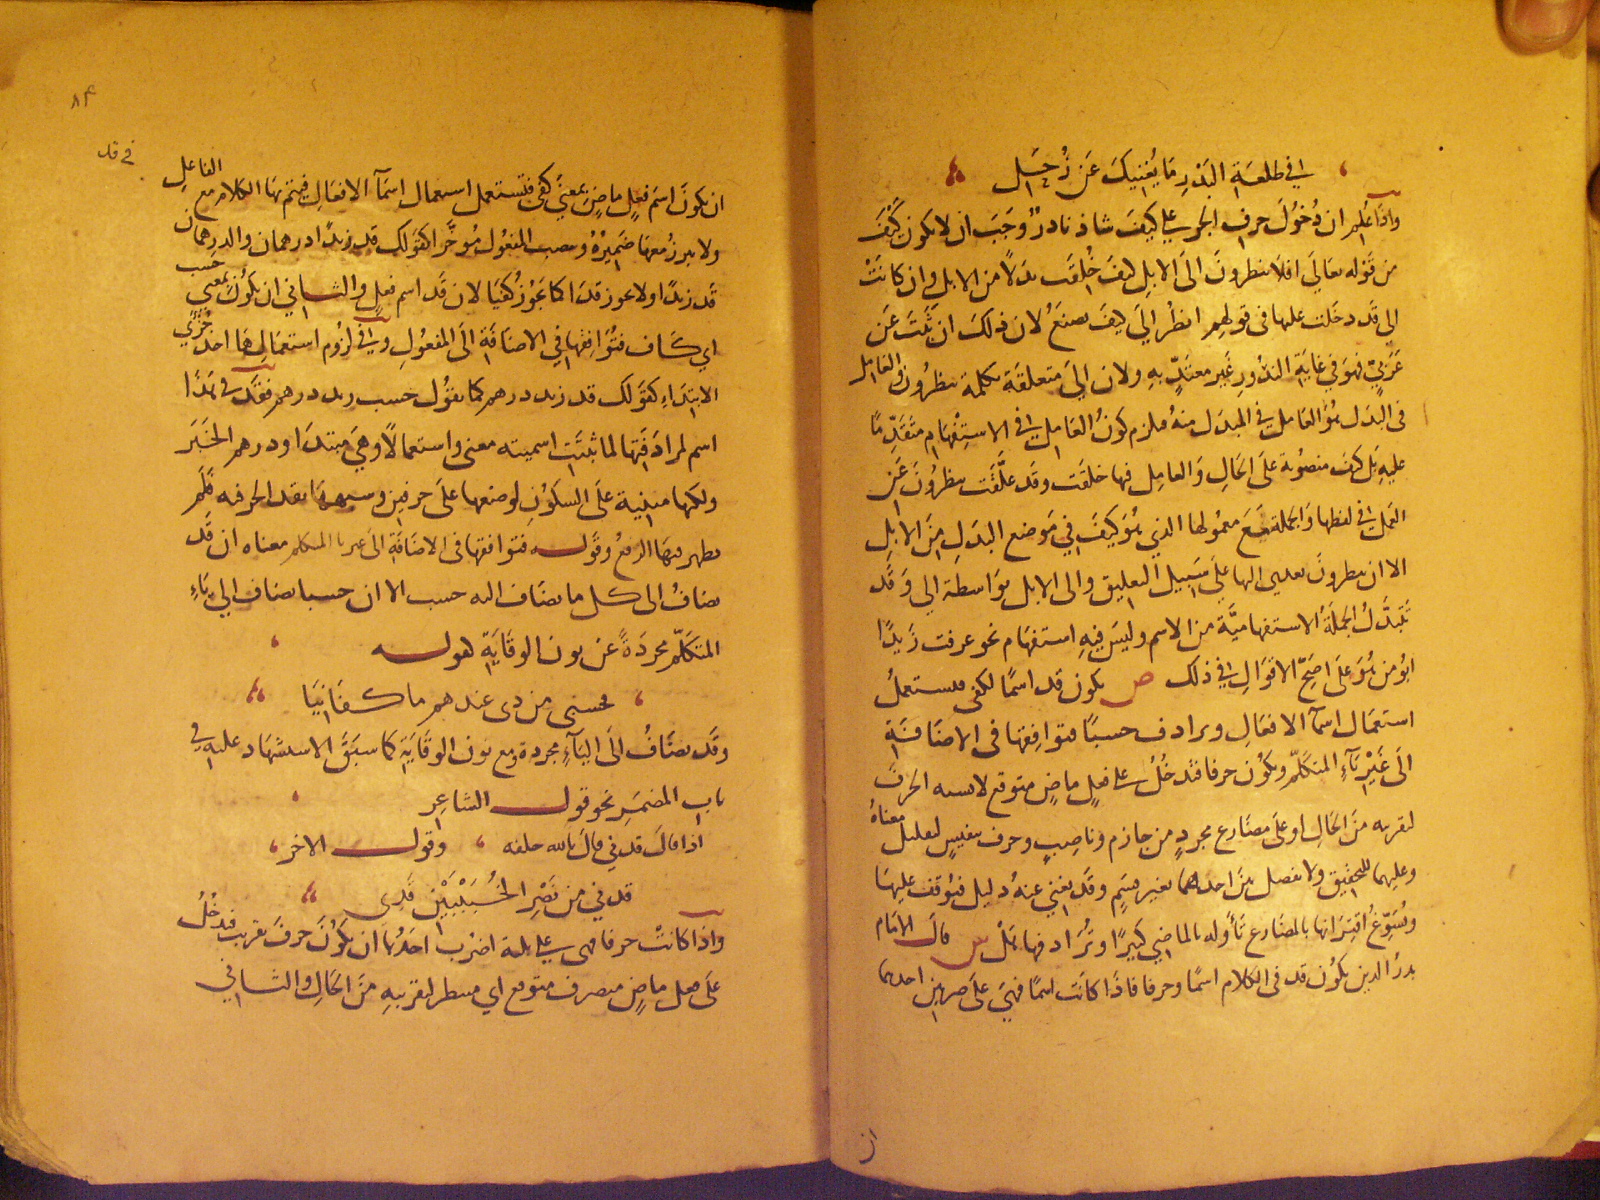 في طلعة البدر ما يغنيك عن زحل
واذا علم ان دخول حرف الجر على كيف شاذ نادر وجب ان لا يكون كيف
من قوله تعالى افلا ينظرون الى الابل كيف خلقت بدلا من الابل وان كانت
الى قد دخلت عليها في قولهم انظر الى كيف يصنع لان ذلك ان ثبت عن
عربي فهو في غاية الندور غير معتد به ولان الى متعلقة بكلمة ينظرون والعامل
في البدل هو العامل في المبدل منه فلزم كون العامل في الاستفهام متقدما
عليه بل كيف منصوبة على الحال والعامل فيها خلقت وقد علقت ينظرون عن
العمل في لفظها والجملة مع معمولها الذي هو كيف في موضع البدل من الابل
الا ان ينظرون تعدى اليها على سبيل التعليق والى الابل بواسطة الى وقد
تبدل الجملة الاستفهامية من الاسم وليس فيه استفهام نحو عرفت زيدا
ابو من هو على اصح الاقوال في ذلك ص يكون قد اسما لكفى فيستعمل
استعمال اسماء الافعال ويرادف حسبا فتوافقها في الاضافة
الى غير ياء المتكلم ويكون حرفا فتدخل على فعل ماض متوقع لا يشبه الحرف
لتقريبه من الحال او على مضارع مجرد من جازم وناصب وحرف تنفيس لتقليل معناه
وعليهما للتحقيق ولا تفصل من احدهما بغير قسم وقد يغني عنه دليل فيوقف عليها
ويسوغ اقترانها بالمضارع تأوله بالماضي كثيرا وترادفها هل ش قال الامام
بدر الدين يكون قد في الكلام اسما وحرفا فاذا كانت اسما فهي على ضربين احدهما
ان
٨٤
في قد
ان يكون اسم فعل ماض بمعنى كفى فتستعمل استعمال اسماء الافعال فيتم بها الكلام مع الفاعل
ولا يبرز معها ضميره وينصب المفعول مؤخرا كقولك قد زيدا درهمان والدرهمان
قد زيدا ولا يجوز قدا كما يجوز كفيا لان قد اسم فعل والثاني ان يكون بمعنى حسب
اي كاف فتوافقها في الاضافة الى المفعول وفي لزوم استعمالها احد جزئي
الابتداء كقولك قد زيد درهم كما تقول حسب زيد درهم فقد في هذا
اسم لمرادفتها لما ثبتت اسميته معنى واستعمالا وهي مبتدا ودرهم الخبر
ولكنها مبنية على السكون لوضعها على حرفين وشبهها بقد الحرفية فلم
يظهر فيها الرفع وقوله فتوافقها في الاضافة الى غير ياء المتكلم معناه ان قد
تضاف الى كل ما يضاف اليه حسب الا ان حسبا تضاف الى ياء
المتكلم مجردة عن نون الوقاية كقوله
فحسبي من ذي عندهم ما كفانيا
وقد تضاف الى الياء مجردة ومع نون الوقاية كما سبق الاستشهاد عليه في
باب المضمر نحو قول الشاعر
اذا قال قدني قال بالله حلفة وقول الاخر
قدني من نصر الخبيبين قدي
واذا كانت حرفا فهي على ثلاثة اضرب احدها ان يكون حرف تقريب فتدخل
على فعل ماض متصرف متوقع اي منتظر لتقريبه من الحال والثاني